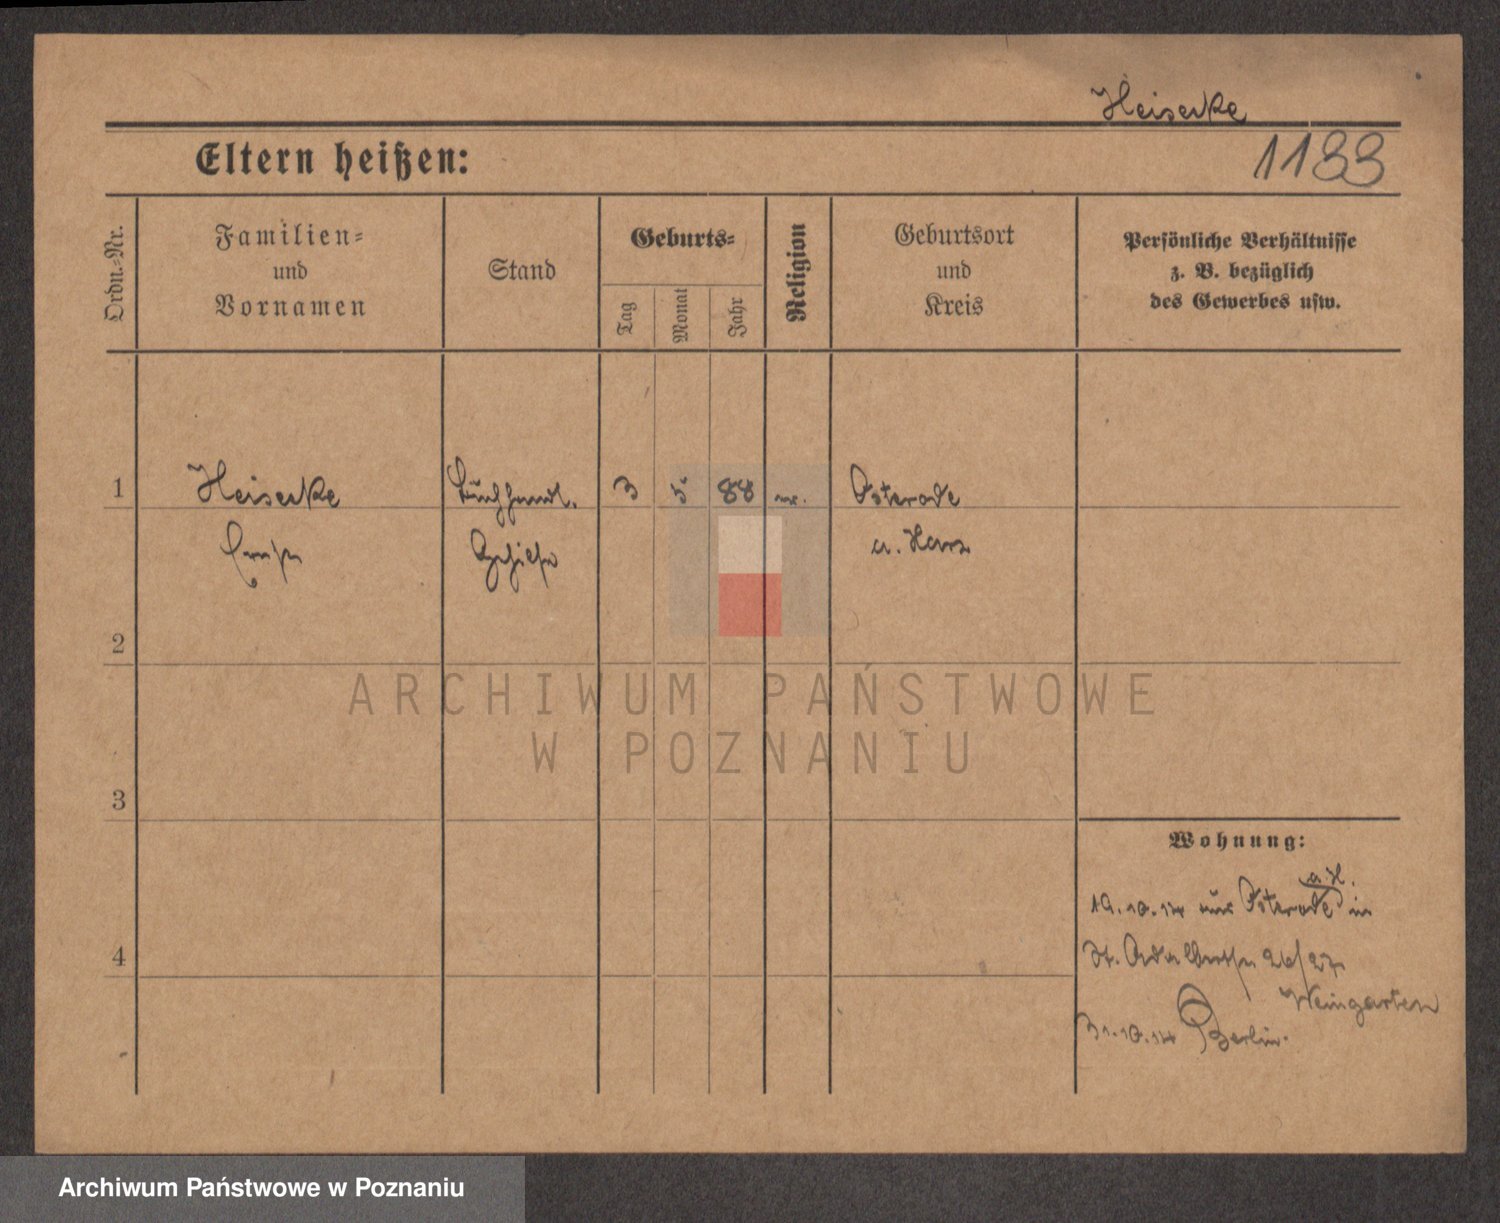 Heiserke
1133
Eltern heißen:
Ordn.-Nr.
Familien-
und
Vornamen
Stand
Geburts-
Tag
Monat
Jahr
Religion
Geburtsort
und
Kreis
Persönliche Verhältnisse
z. B. bezüglich
des Gewerbes usw.
1 Heiserke Buchhandl. 3 5 88 Osterode
Ernst Gehilfe a. Harz
2
ARCHIWUM PAŃSTWOWE
W POZNANIU
3
Wohnung:
a. H.
19.10.14 aus Osterode in
4 St. Adalbertstr 26/27
Weingarten
31.10.14 Berlin.
Archiwum Państwowe w Poznaniu